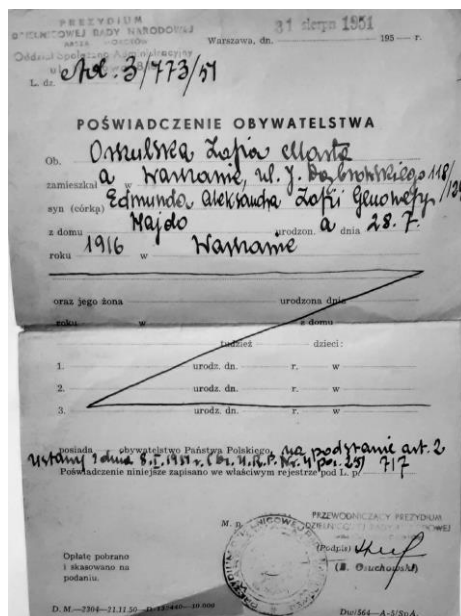 PREZYDIUM
DZIELNICOWEJ RADY NARODOWEJ
Oddział Społeczno Administracyjny
Warszawa, dn. 31 sierpn 1951 195 — r.
L. dz. 3/773/51
POŚWIADCZENIE OBYWATELSTWA
Ob. Zofia Marta
zamieszkał a w Warszawie, ul. J. Dąbrowskiego 118/
syn (córka) Edmunda Aleksandra Zofii Genowefy
z domu Majdo urodzon. a dnia 28. 7.
roku 1916 w Warszawie
oraz jego żona urodzona dnia
roku w z domu
tudzież dzieci:
1. urodz. dn. r. w
2. urodz. dn. r. w
3. urodz. dn. r. w
posiada obywatelstwo Państwa Polskiego, na podstawie art. 2
Ustawy z dnia 8.I.1951 r. (Dz. U. R. P. Nr. 4 poz. 25)
Poświadczenie niniejsze zapisano we właściwym rejestrze pod L. p. 717
M. p.
PRZEWODNICZĄCY PREZYDIUM
DZIELNICOWEJ RADY NARODOWEJ
(Podpis)
Opłatę pobrano
i skasowano na
podaniu.
D. M.—2304—21.11.50